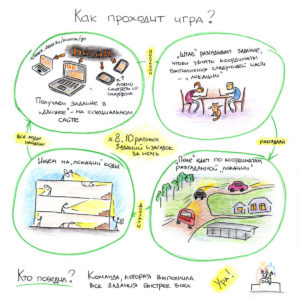 Как проходит игра?
Получаем задание в
"Движке" - на специальном
сайте
можно
смотреть со
смартфона
"Штаб" разгадывает задание,
чтобы узнать координаты
выполнения следующей части
- "локации"
х 8-10 разных
заданий и загадок
за ночь
Все коды
найдены
разгадали
Ищем на "локации" коды
"Поле" едет по координатам
разгаданной "локации"
Кто победил?
Команда, которая выполнила
все задания быстрее всех
Ура!